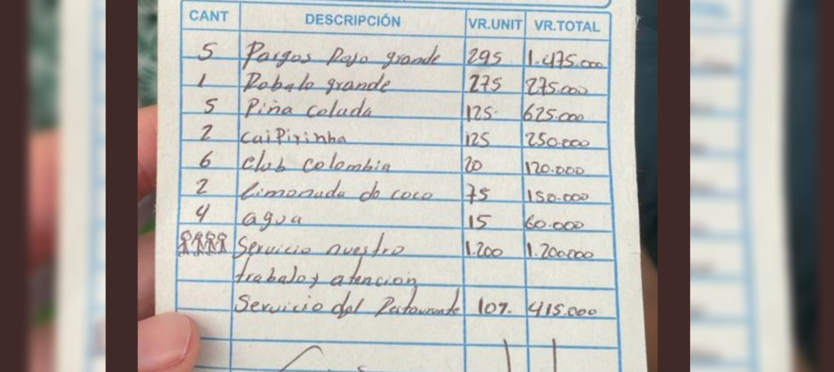 CANT DESCRIPCIÓN VR.UNIT VR.TOTAL
5 Pargos Rojo grande 295 1.475.000
1 Robalo grande 275 275.000
5 Piña colada 125 625.000
2 caiPirinha 125 250.000
6 club colombia 20 120.000
2 limonada de coco 75 150.000
4 agua 15 60.000
Servicio nuestro 1.200 1.200.000
trabalo y atencion
Servicio del Restaurante 10%. 415.000